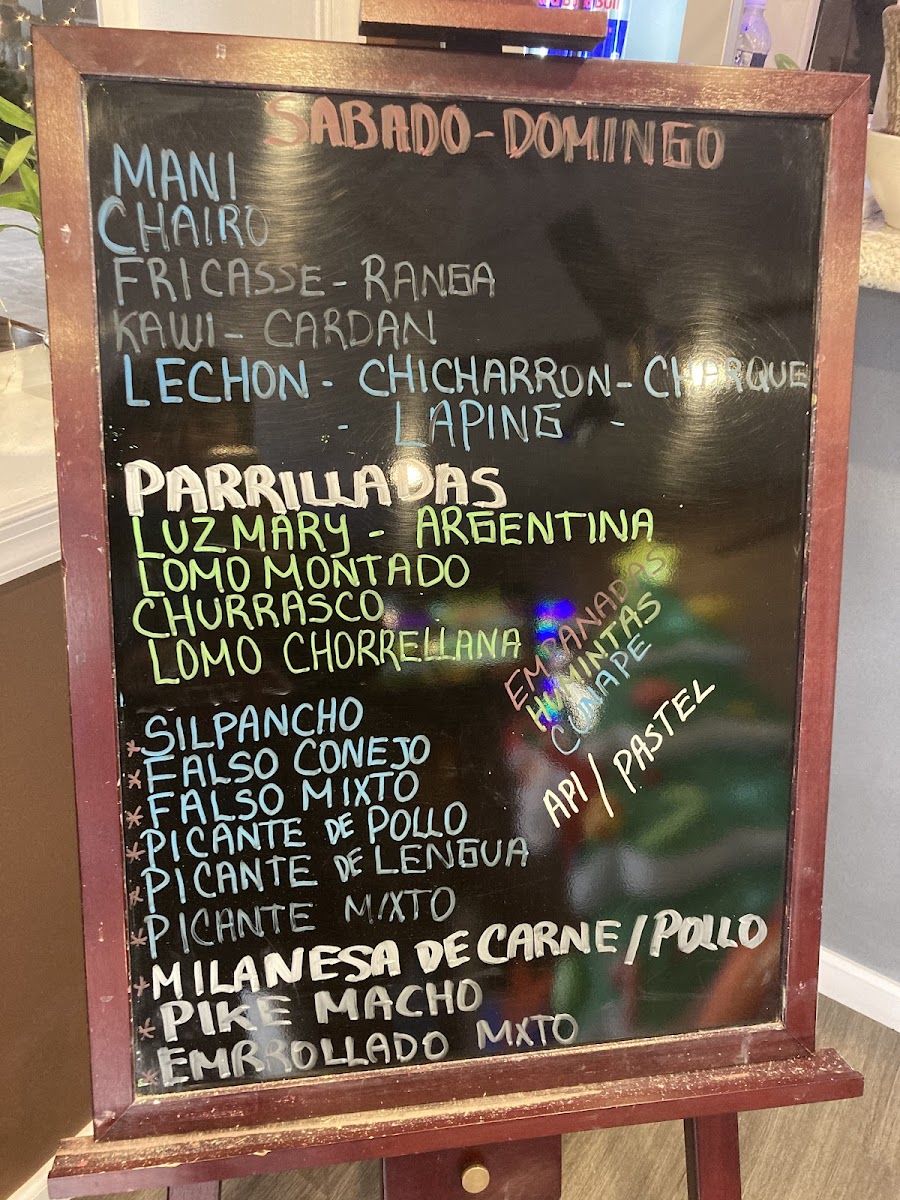 SABADO-DOMINGO
MANI
CHAIRO
FRICASSE - RANGA
KAWI - CARDAN
LECHON - CHICHARRON - CHARQUE
- LAPING -
PARRILLADAS
LUZMARY - ARGENTINA
LOMO MONTADO
CHURRASCO
LOMO CHORRELLANA
EMPANADAS
HUMINTAS
CUÑAPE
API / PASTEL
* SILPANCHO
* FALSO CONEJO
* FALSO MIXTO
* PICANTE DE POLLO
* PICANTE DE LENGUA
* PICANTE MIXTO
* MILANESA DE CARNE / POLLO
* PIKE MACHO
* EMRROLLADO MXTO